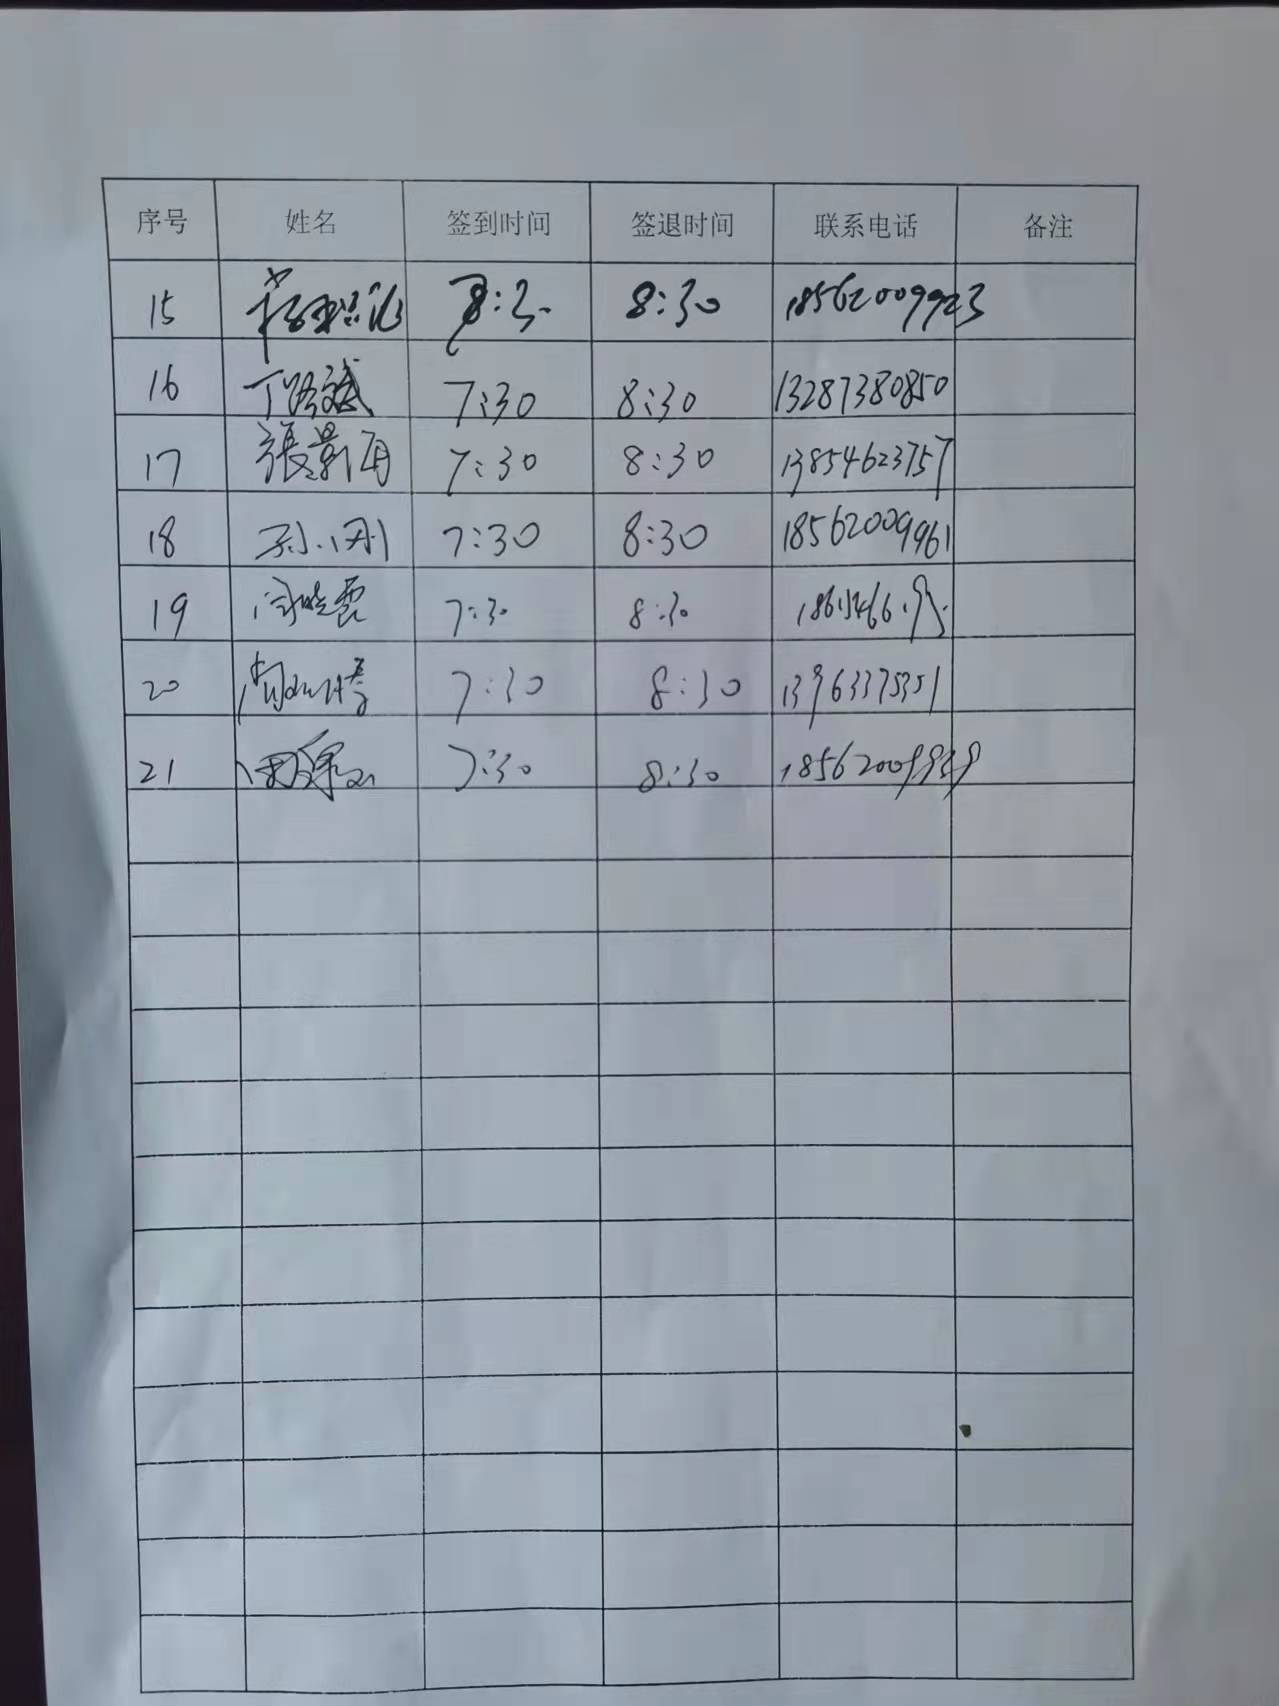 序号 姓名 签到时间 签退时间 联系电话 备注
15 8:30 18562009923
16 丁路斌 7:30 8:30 13287380850
17 張景海 7:30 8:30 13854623757
18 孙小刚 7:30 8:30 18562009961
19 闫晓霞 7:30 8:30
20 7:30 8:30 13963375351
21 7:30 8:30 18562009929